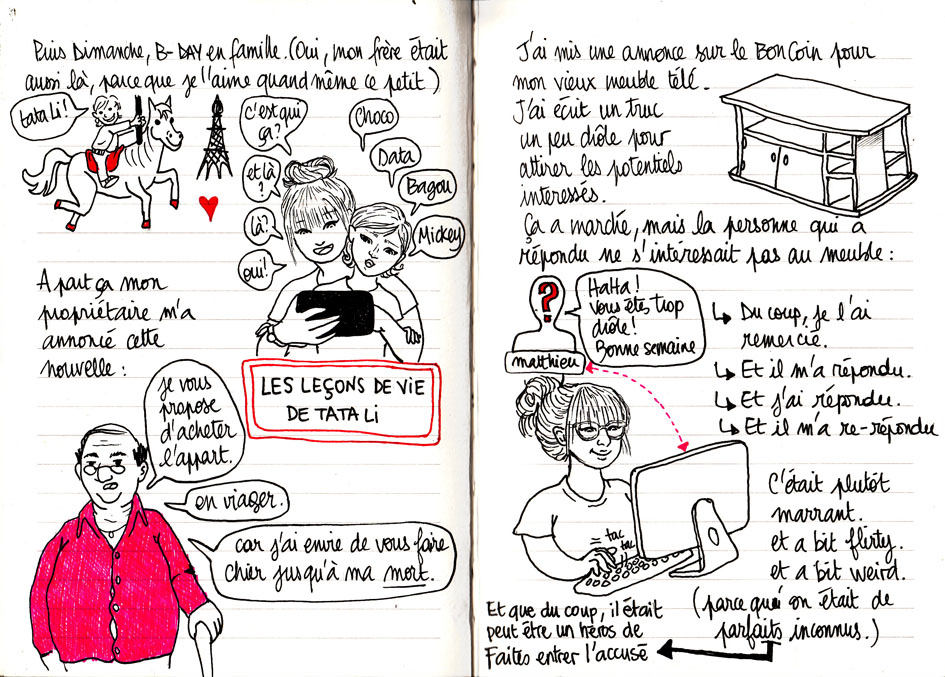 Puis Dimanche, B-DAY en famille. (Oui, mon frère était
aussi là, parce que je l'aime quand même ce petit)
tata Li !
c'est qui
ça ?
et là
?
là ?
oui !
Choco
Data
Bagou
Mickey
LES LEÇONS DE VIE
DE TATA LI
A part ça mon
propriétaire m'a
annoncé cette
nouvelle :
je vous
propose
d'acheter
l'appart.
en viager.
car j'ai envie de vous faire
chier jusqu'à ma mort.
J'ai mis une annonce sur le BonCoin pour
mon vieux meuble télé.
J'ai écrit un truc
un peu drôle pour
attirer les potentiels
interessés.
Ça a marché, mais la personne qui a
répondu ne s'intéressait pas au meuble :
?
matthieu
HaHa !
vous êtes trop
drôle !
Bonne semaine
↳ Du coup, je l'ai
remercié.
↳ Et il m'a répondu.
↳ Et j'ai répondu.
↳ Et il m'a re-répondu
tac
tac
C'était plutôt
marrant.
et a bit flirty.
et a bit weird.
(parce qu'on était de
parfaits inconnus.)
Et que du coup, il était
peut être un héros de
Faites entrer l'accusé